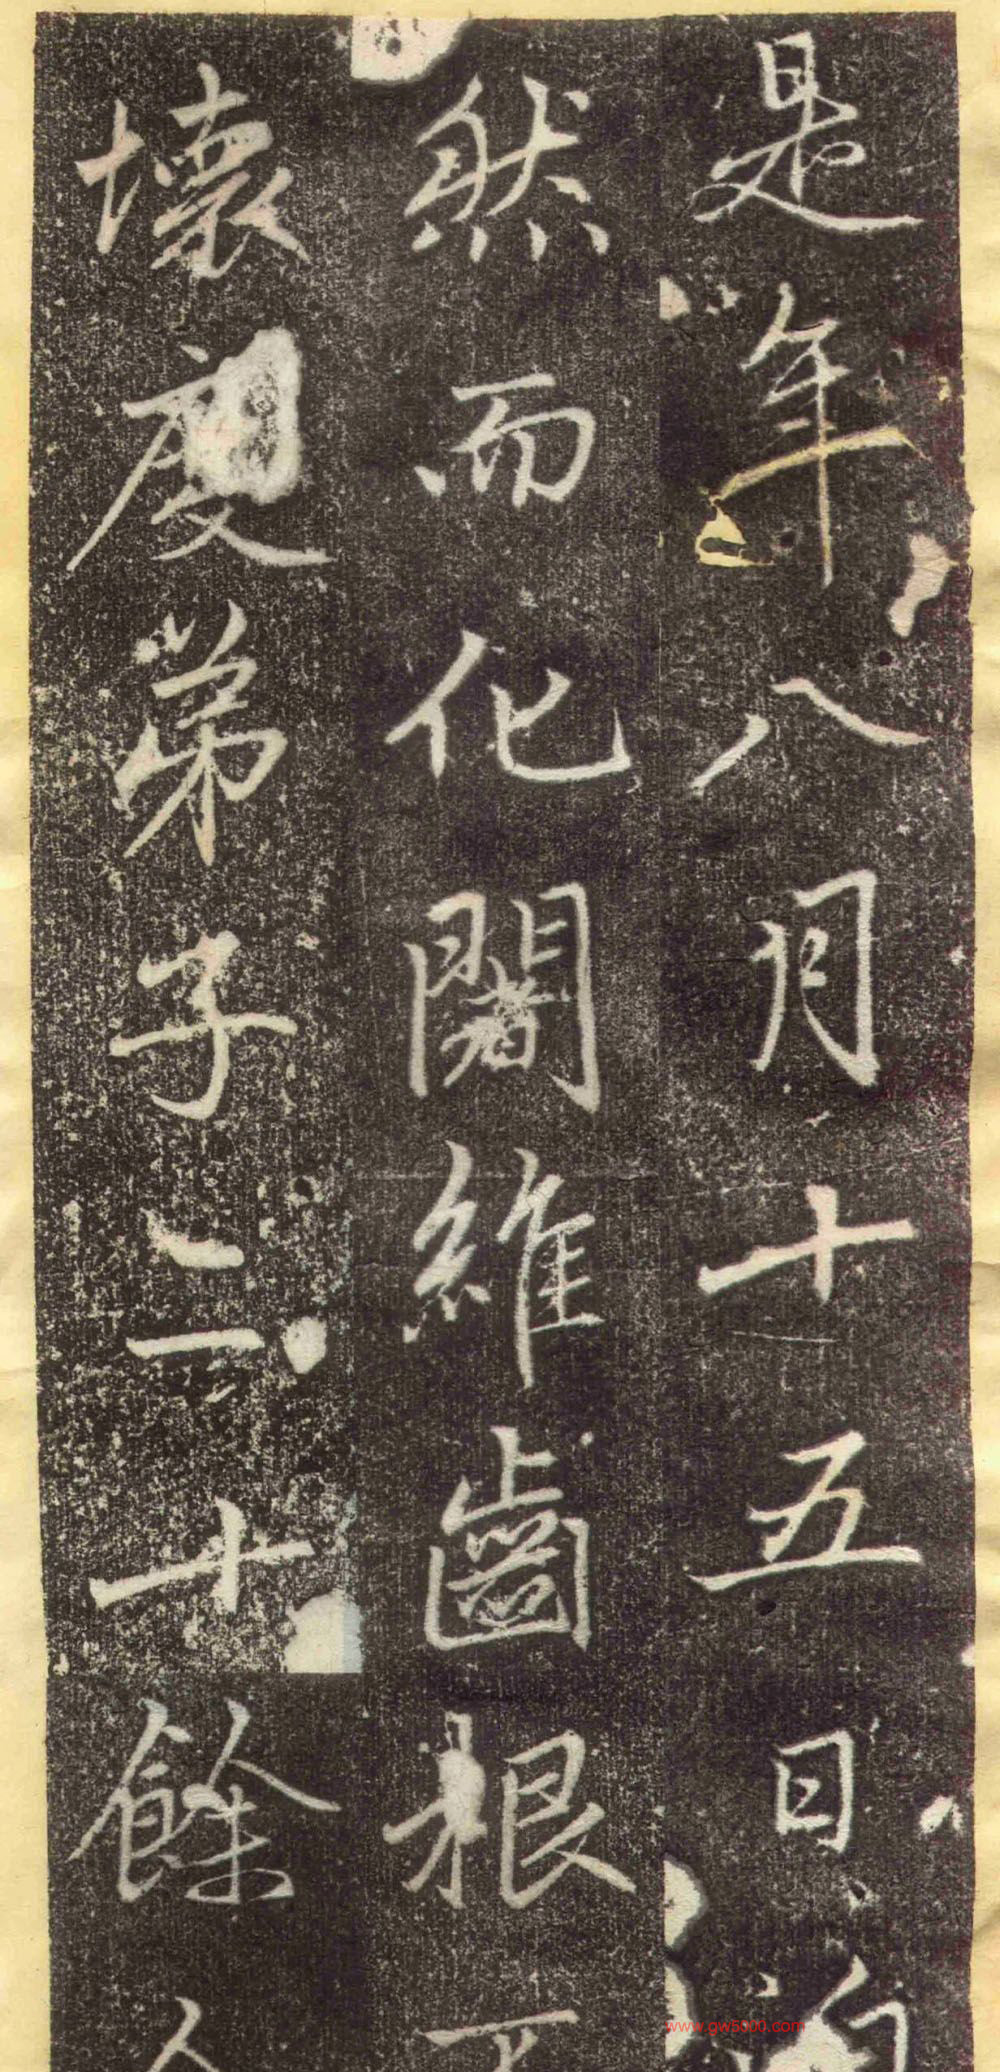 是年八月十五日
然而化闍維齒根不
壞慶弟子二十餘
www.gw5000.com